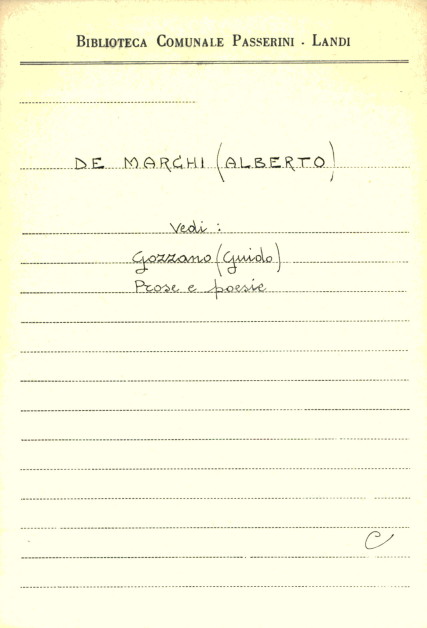 BIBLIOTECA COMUNALE PASSERINI - LANDI
DE MARCHI (ALBERTO)
Vedi :
Gozzano (Guido)
Prose e poesie
C